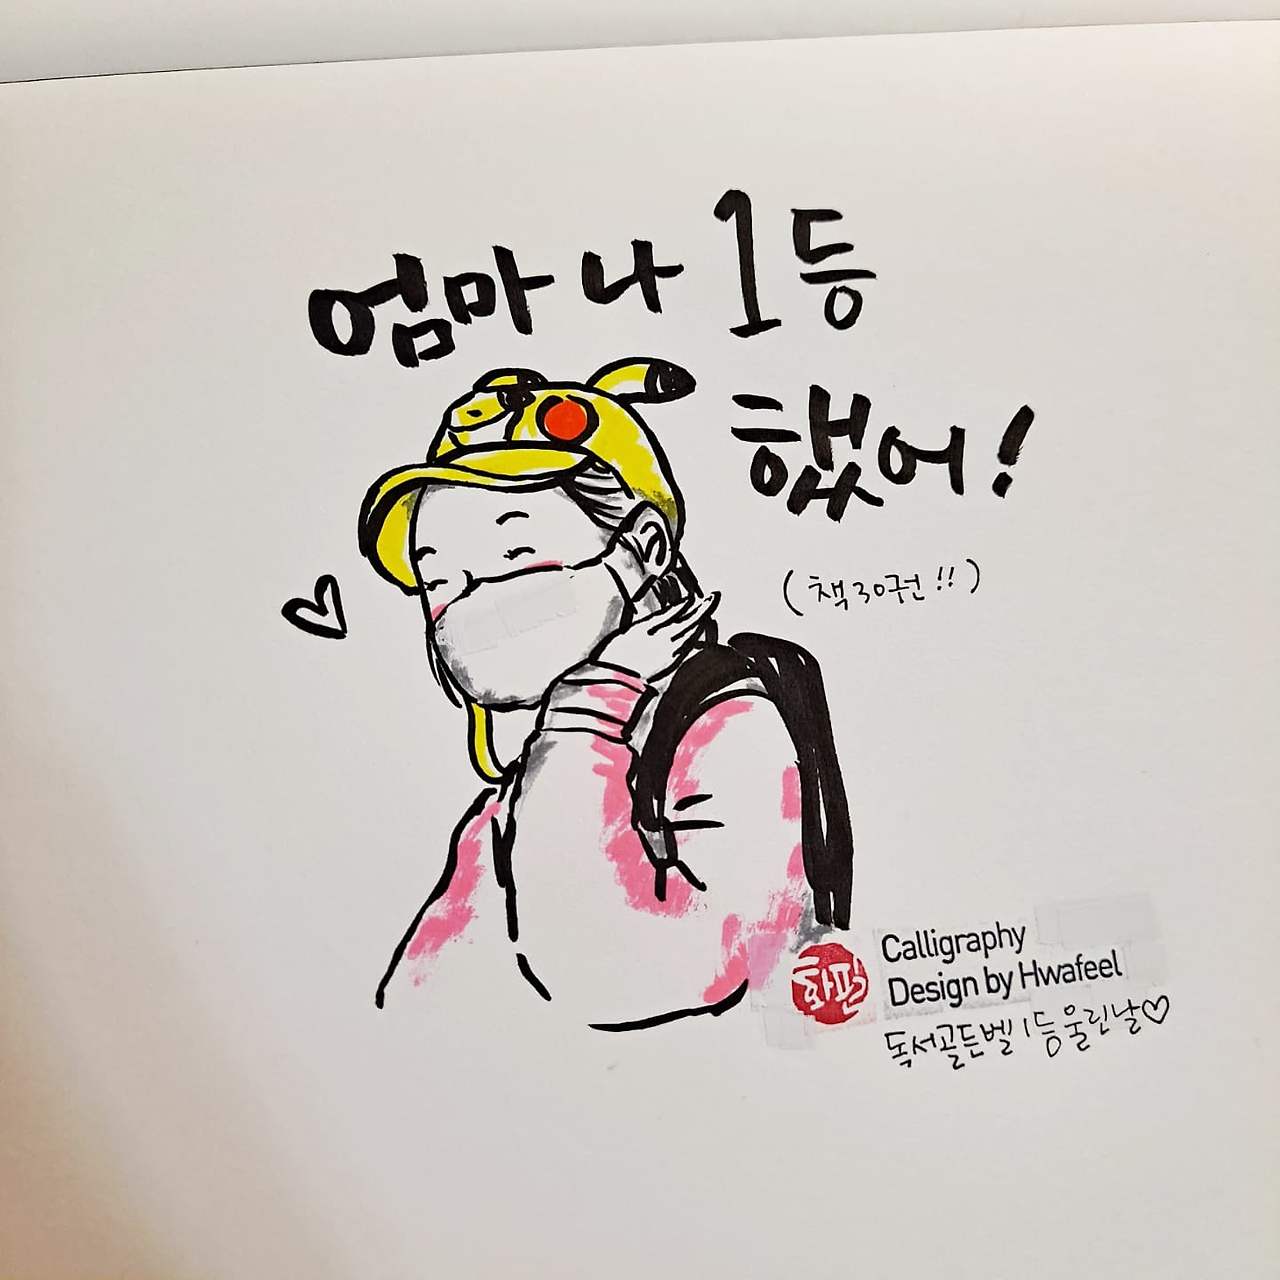 엄마 나 1등
했어!
(책30권!!)
화필
Calligraphy
Design by Hwafeel
독서골든벨 1등 울린날♡